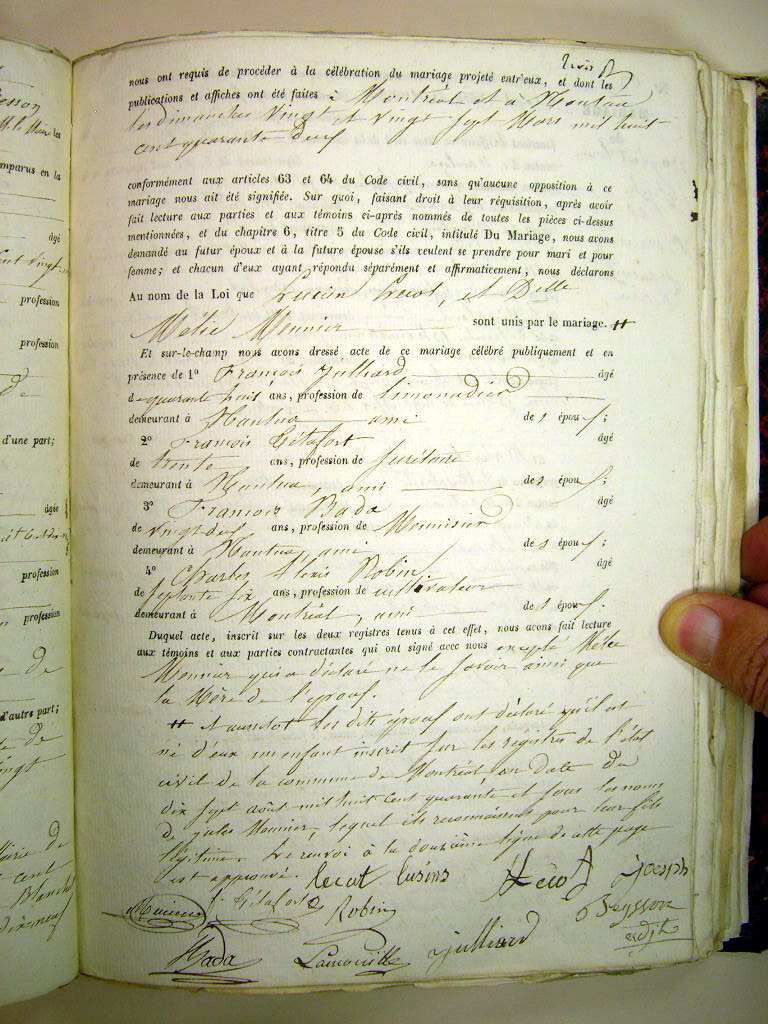 nous ont requis de procéder à la célébration du mariage projeté entr'eux, et dont les
publications et affiches ont été faites à Montréal et à Nantua
les dimanches vingt et vingt sept Mars mil huit
cent quarante deux
conformément aux articles 63 et 64 du Code civil, sans qu'aucune opposition à ce
mariage nous ait été signifiée. Sur quoi, faisant droit à leur réquisition, après avoir
fait lecture aux parties et aux témoins ci-après nommés de toutes les pièces ci-dessus
mentionnées, et du chapitre 6, titre 5 du Code civil, intitulé Du Mariage, nous avons
demandé au futur époux et à la future épouse s'ils veulent se prendre pour mari et pour
femme; et chacun d'eux ayant répondu séparément et affirmativement, nous déclarons
Au nom de la Loi que Lucien Lecot, et Delle
Mélie Meunier sont unis par le mariage. #
Et sur-le-champ nous avons dressé acte de ce mariage célébré publiquement et en
présence de 1º François Julliard âgé
de quarante huit ans, profession de limonadier
demeurant à Nantua ami de s épou x;
2º François Gétafort âgé
de trente ans, profession de Secrétaire
demeurant à Nantua, ami de s épou x;
3º François Bada âgé
de vingt deux ans, profession de Menuisier
demeurant à Nantua, ami de s épou x;
4º Charles Alexis Robin âgé
de septante six ans, profession de cultivateur
demeurant à Montréal, ami de s épou x.
Duquel acte, inscrit sur les deux registres tenus à cet effet, nous avons fait lecture
aux témoins et aux parties contractantes qui ont signé avec nous excepté Mélie
Meunier qui a déclaré ne le savoir ainsi que
la Mère de l'époux.
# et aussitôt les dits époux ont déclaré qu'il est
né d'eux un enfant inscrit sur les registres de l'état
civil de la commune de Montréal en date du
dix sept août mil huit cent quarante et sous les noms
de jules Meunier, lequel ils reconnaissent pour leur fils
légitime. Le renvoi à la douzième ligne de cette page
est approuvé. Lecot lusiens Lecot Joseph
Gétafort Robin Peysson
Bada Julliard adjt
mparus en la
âgé
profession
profession
d'une part;
âgée
profession
profession
d'autre part;